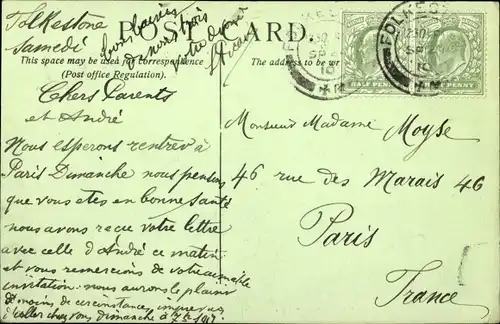 Folkestone
Samedi
Bons baisers
de nous trois
votre
POST CARD.
This space may be used for correspondence
(Post office Regulation).
The address to be
FOLKESTONE
HALF PENNY
Chers Parents
et André
Nous esperons rentrer à
Paris Dimanche nous pensons
que vous etes en bonne santé
nous avons reçu votre lettre
avec celle d'André ce matin
et vous remercions de votre aimable
invitation: nous aurons le plaisir
à moins de circonstances imprevues
d'aller chez vous dimanche à 7h
Monsieur Madame Moyse
46 rue des Marais 46
Paris
France